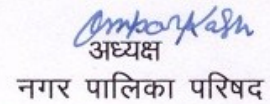 अध्यक्ष
नगर पालिका परिषद